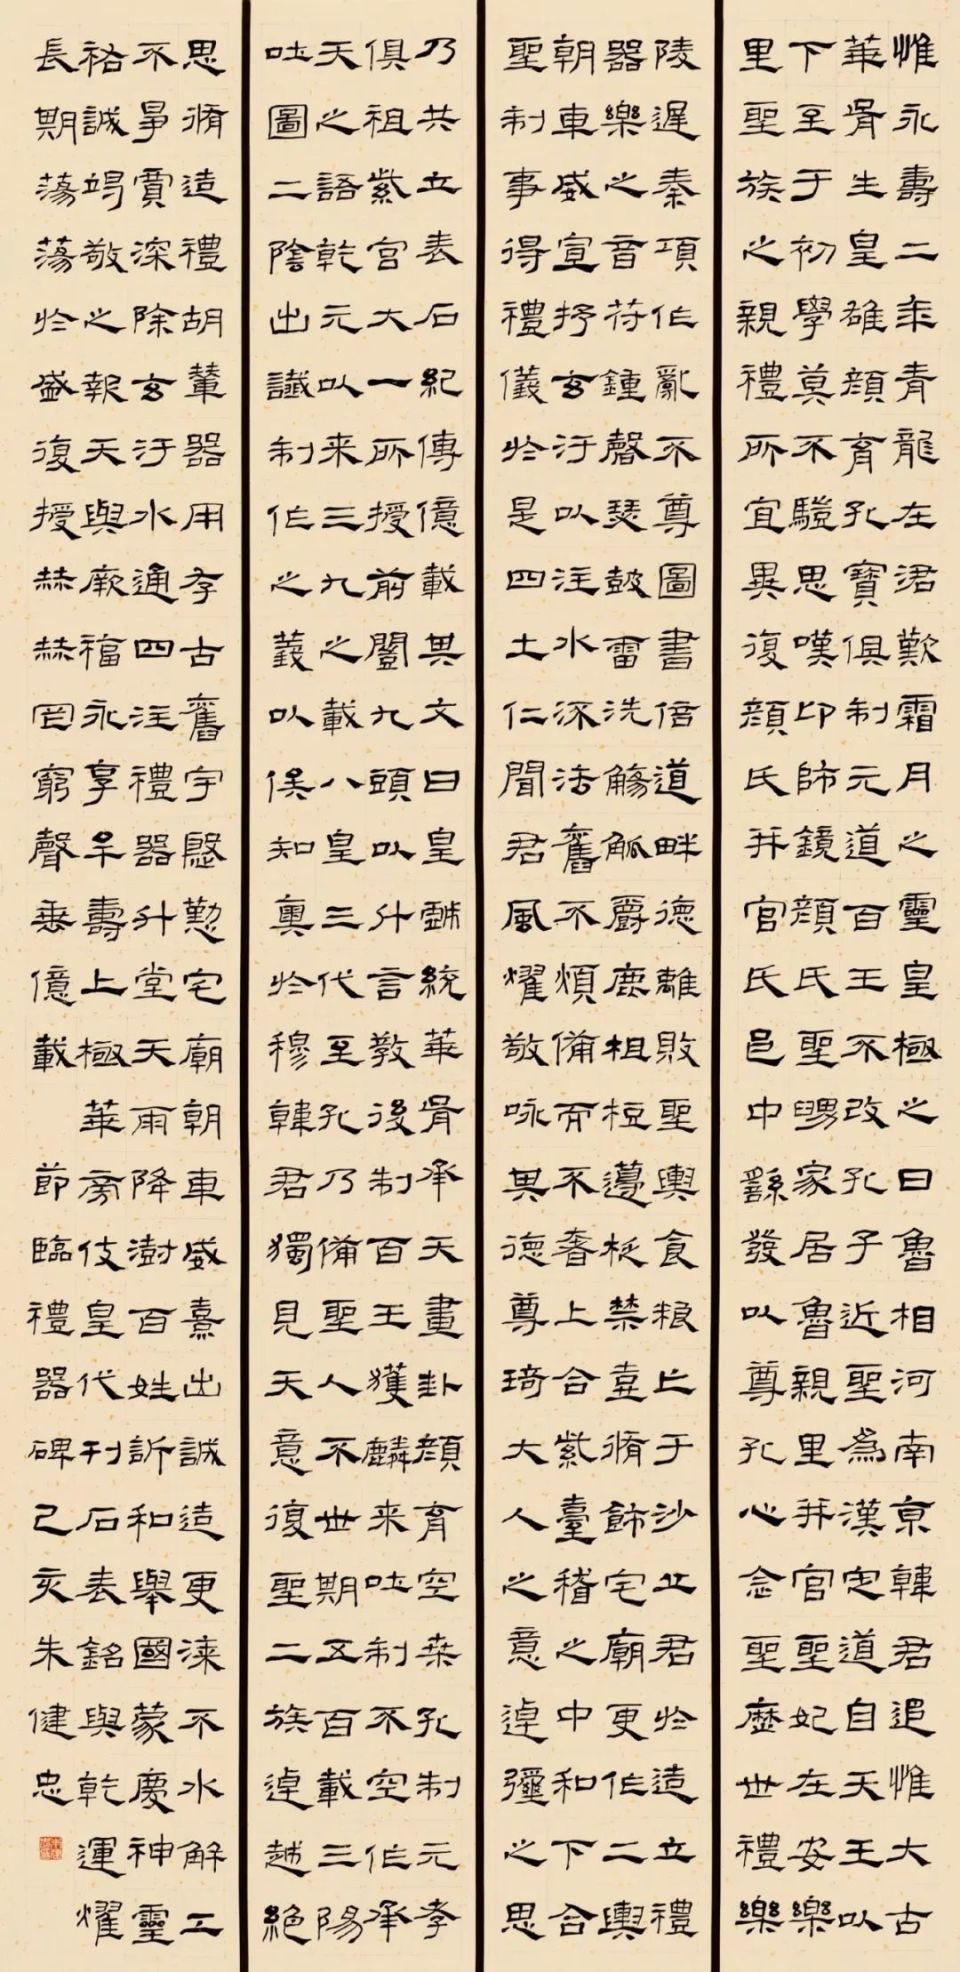 惟永壽二年青龍在涒歎霜月之靈皇極之日魯相河南京韓君追惟大古
華胥生皇雄顏育孔寶俱制元道百王不改孔子近聖為漢定道自天王以
下至于初學莫不驥思嘆卬師鏡顏氏聖舅家居魯親里并官聖妃在安樂
里聖族之親禮所宜異復顏氏并官氏邑中繇發以尊孔心念聖歷世禮樂
陵遲秦項作亂不尊圖書倍道畔德離敗聖輿食粮亡于沙丘君於造立禮
器樂之音符鍾磬瑟鼓雷洗觴觚爵鹿柤梪籩柉禁壺脩飾宅廟更作二輿
朝車威宣抒玄汙以注水流法舊不煩備而不奢上合紫臺稽之中和下合
聖制事得禮儀於是四土仁聞君風燿敬咏其德尊琦大人之意逴彌之思
乃共立表石紀傳億載其文曰皇戲統華胥承天畫卦顏育空桑孔制元孝
俱祖紫宮大一所授前闓九頭以什言教後制百王獲麟来吐制不空作承
天之語乾元以来三九之載八皇三代至孔乃備聖人不世期五百載三陽
吐圖二陰出讖制作之義以俟知奧於穆韓君獨見天意復聖二族逴越絕
思脩造禮胡輦器用存古舊宇慇懃宅廟朝車威熹出誠造更漆不水解工
不爭賈深除玄汙水通四注禮器升堂天雨降澍百姓訢和舉國蒙慶神靈
祐誠竭敬之報天與厥福永享牟壽上極華旁伎皇代刊石表銘與乾運燿
長期蕩蕩於盛復授赫赫罔窮聲垂億載 節臨禮器碑己亥朱健忠